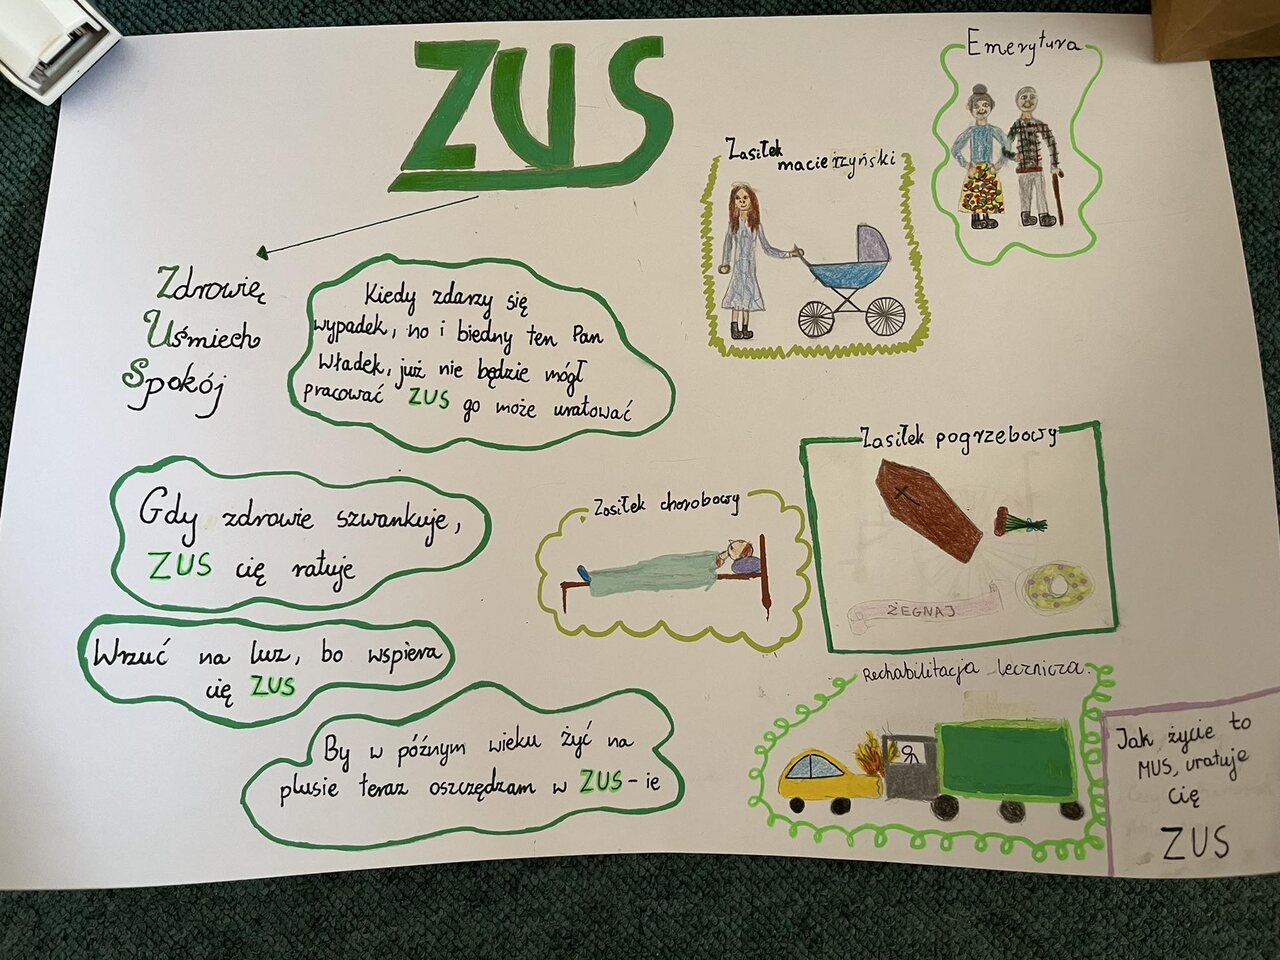 ZUS
Zdrowie
Uśmiech
Spokój
Kiedy zdarzy się
wypadek, no i biedny ten Pan
Władek, już nie będzie mógł
pracować ZUS go może uratować
Gdy zdrowie szwankuje,
ZUS cię ratuje
Wrzuć na luz, bo wspiera
cię ZUS
By w późnym wieku żyć na
plusie teraz oszczędzam w ZUS-ie
Emerytura
Zasiłek
macierzyński
Zasiłek pogrzebowy
ŻEGNAJ
Zasiłek chorobowy
Rechabilitacja lecznicza.
Jak życie to
MUS, uratuje
cię
ZUS